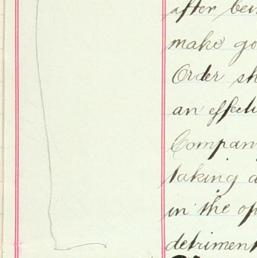 after bei
make go
Order sh
an effectu
Compan
taking a
in the op
detrimen